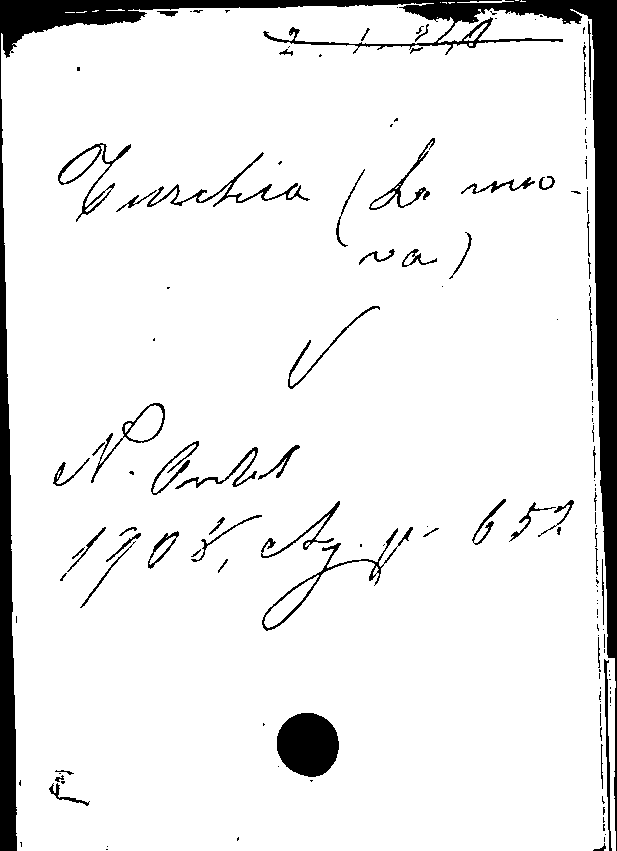 2. 1. 240
Turchia (La nuo-
va)
V
N. Antol
1908, Ag. p. 652